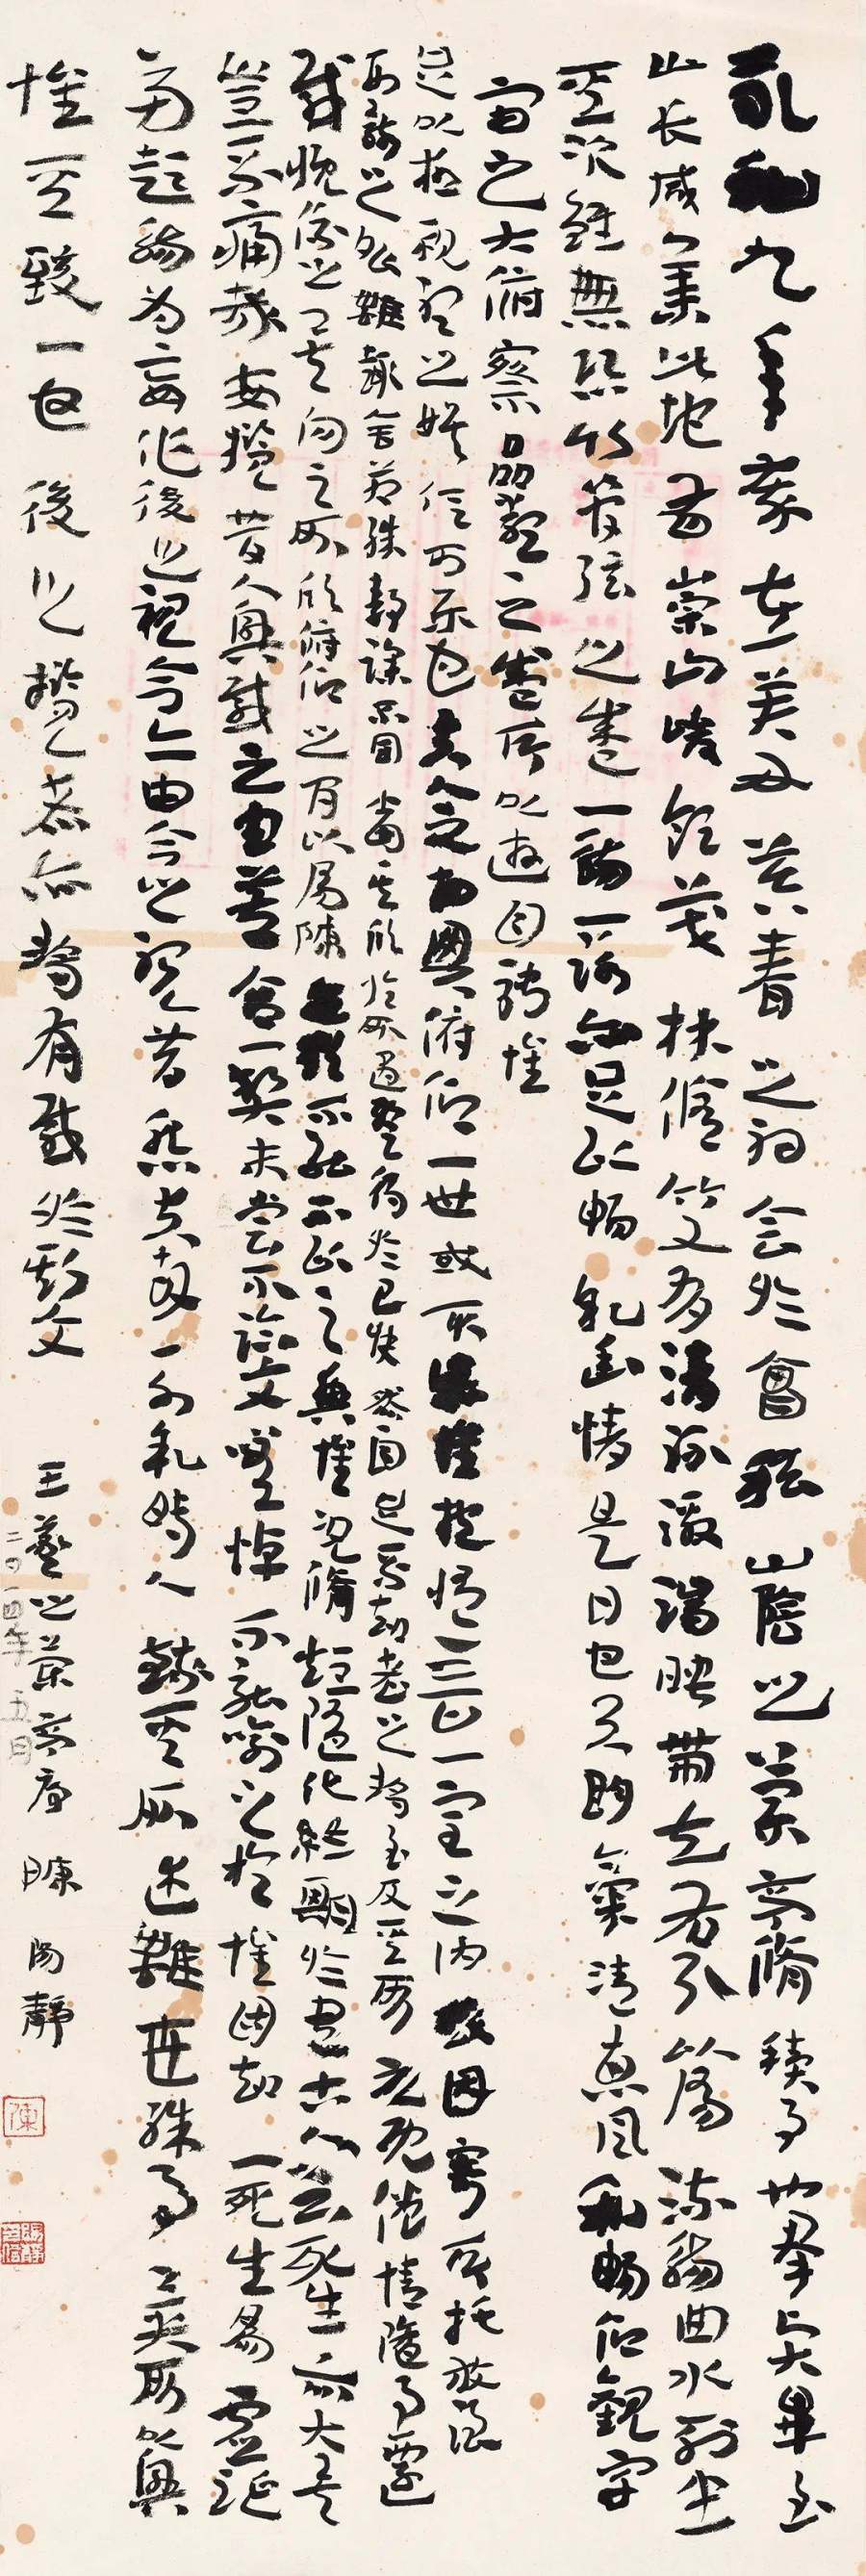 永和九年歲在癸丑暮春之初會於會稽山陰之蘭亭脩禊事也羣賢畢至
少长咸集此地有崇山峻領茂林脩竹又有清流激湍映帶左右引以為流觴曲水列坐
其次雖無絲竹管弦之盛一觴一詠亦足以暢叙幽情是日也天朗氣清惠風和暢仰觀宇
宙之大俯察品類之盛所以遊目騁懷
足以極視聽之娛信可樂也夫人之相與俯仰一世或取諸懷抱悟言一室之內或因寄所托放浪
形骸之外雖趣舍萬殊靜躁不同當其欣於所遇暫得於己快然自足不知老之將至及其所之既倦情隨事遷
感慨係之矣向之所欣俯仰之間以為陳迹猶不能不以之興懷況脩短隨化終期於盡古人云死生亦大矣
豈不痛哉每攬昔人興感之由若合一契未嘗不臨文嗟悼不能喻之於懷固知一死生為虛誕
齊彭殤為妄作後之視今亦由今之視昔悲夫故列叙時人錄其所述雖世殊事異所以興
懷其致一也後之攬者亦將有感於斯文 王羲之蘭亭序 陳陽靜
二〇一四年五月
陳